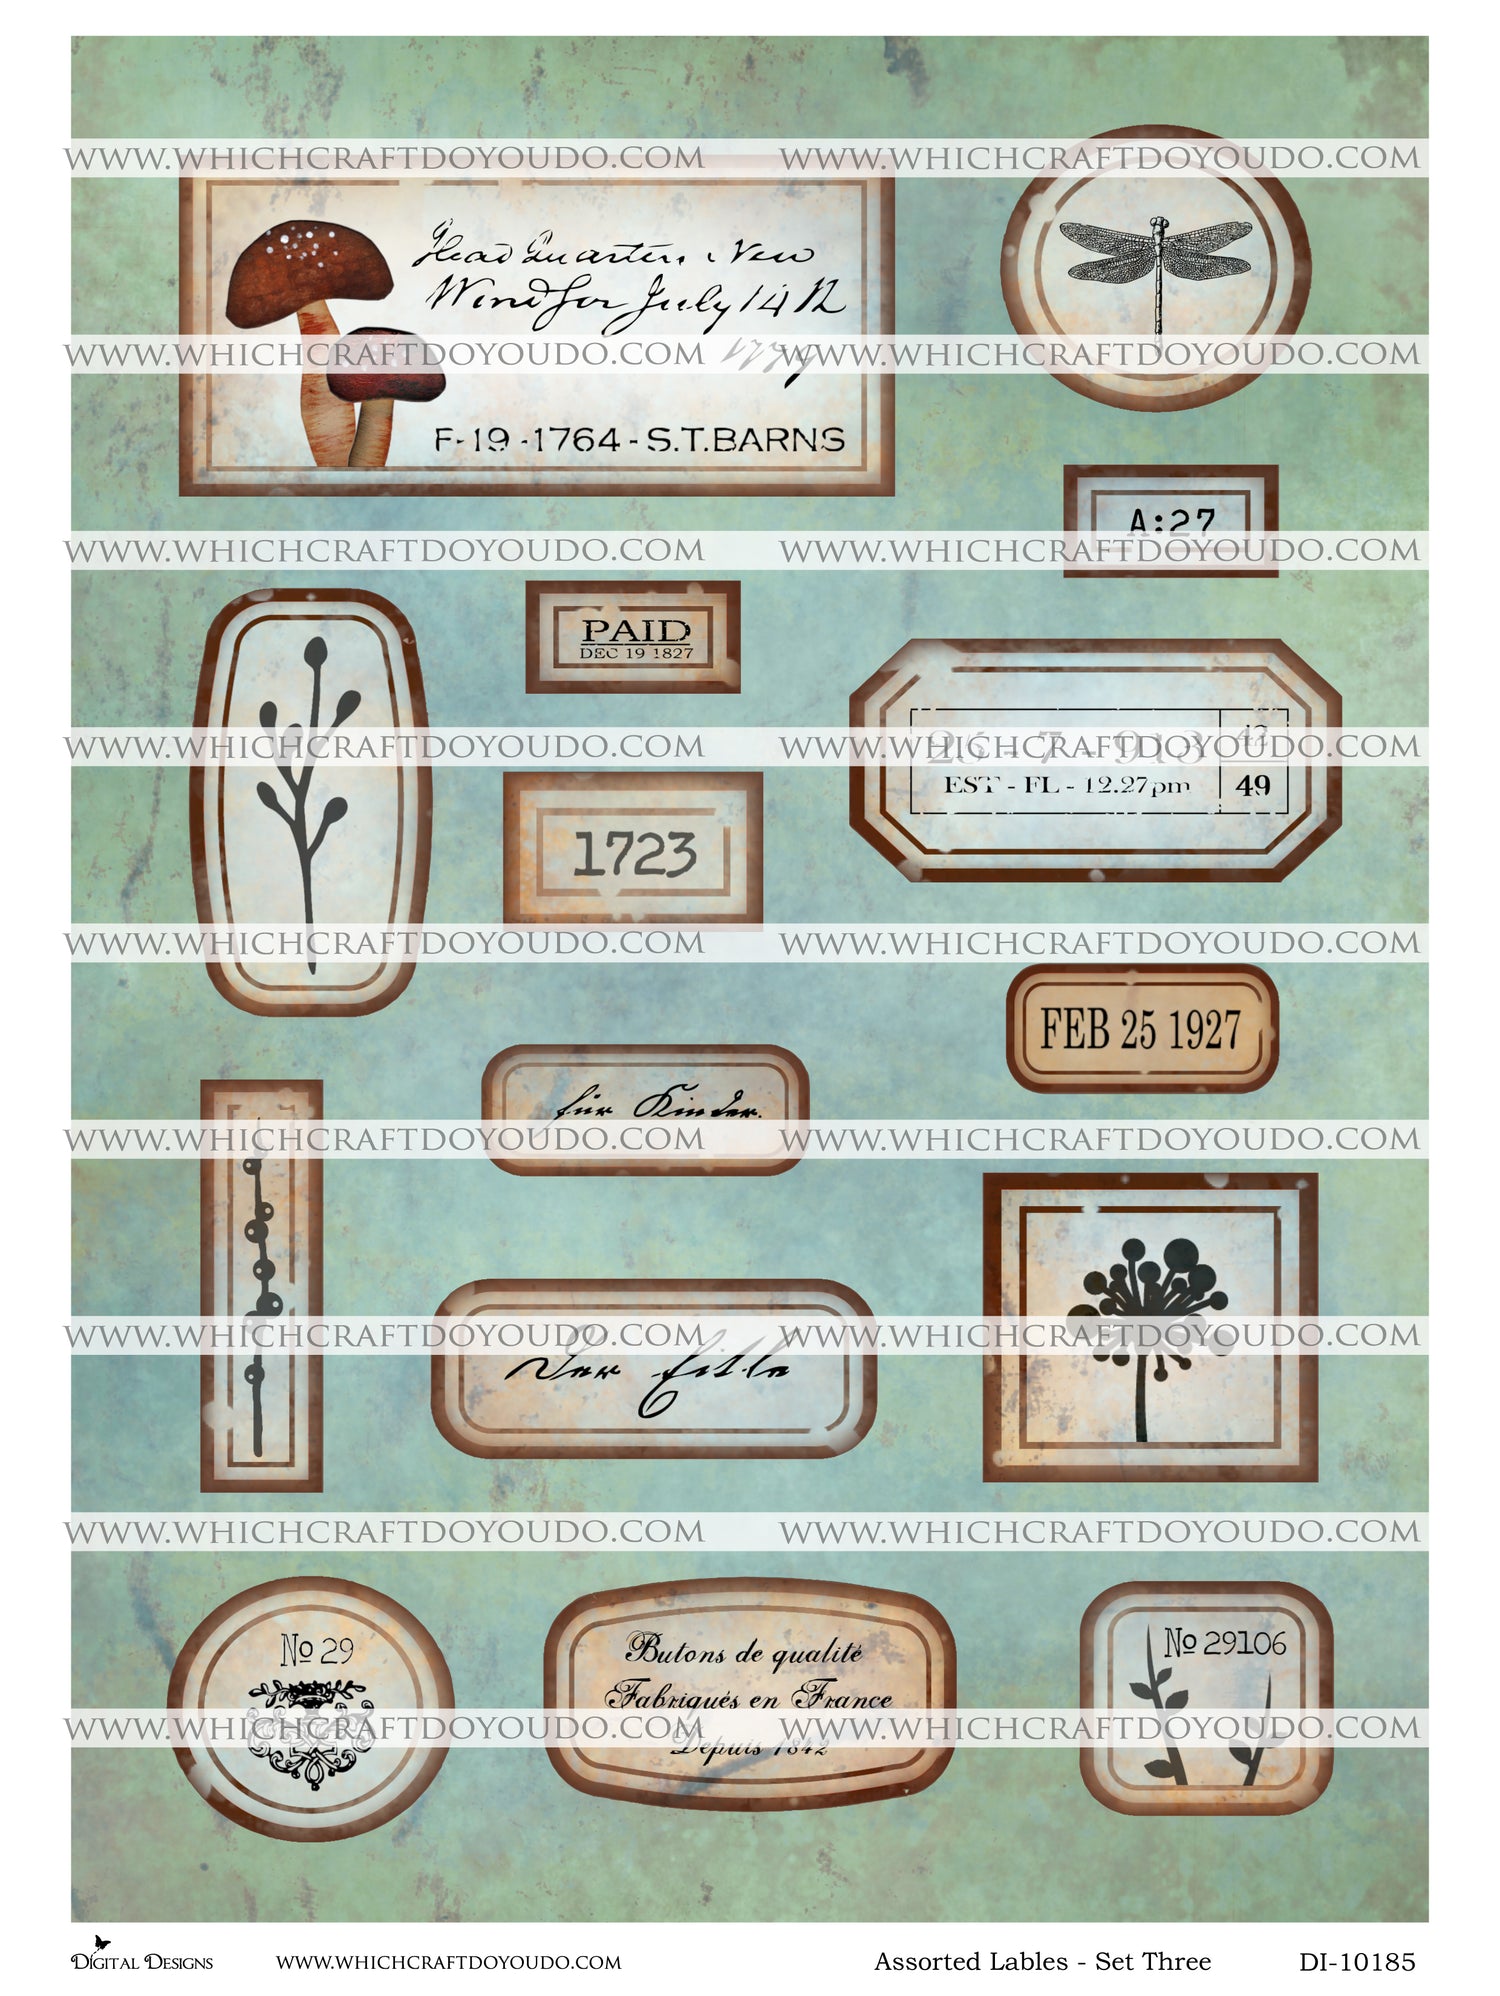 WWW.WHICHCRAFTDOYOUDO.COM WWW.WHICHCRAFTDOYOUDO.COM
Head Quarters New
Windsor July 14th
WWW.WHICHCRAFTDOYOUDO.COM 1779 WWW.WHICHCRAFTDOYOUDO.COM
F-19-1764-S.T.BARNS
A:27
WWW.WHICHCRAFTDOYOUDO.COM WWW.WHICHCRAFTDOYOUDO.COM
PAID
DEC 19 1827
WWW.WHICHCRAFTDOYOUDO.COM WWW.WHICHCRAFTDOYOUDO.COM
26 - 7 - 913 42
EST - FL - 12.27pm 49
1723
WWW.WHICHCRAFTDOYOUDO.COM WWW.WHICHCRAFTDOYOUDO.COM
FEB 25 1927
für Kinder.
WWW.WHICHCRAFTDOYOUDO.COM WWW.WHICHCRAFTDOYOUDO.COM
WWW.WHICHCRAFTDOYOUDO.COM WWW.WHICHCRAFTDOYOUDO.COM
Der
WWW.WHICHCRAFTDOYOUDO.COM WWW.WHICHCRAFTDOYOUDO.COM
No 29
Butons de qualité
Fabriqués en France
Depuis 1842
No 29106
WWW.WHICHCRAFTDOYOUDO.COM WWW.WHICHCRAFTDOYOUDO.COM
DIGITAL DESIGNS WWW.WHICHCRAFTDOYOUDO.COM Assorted Lables - Set Three DI-10185